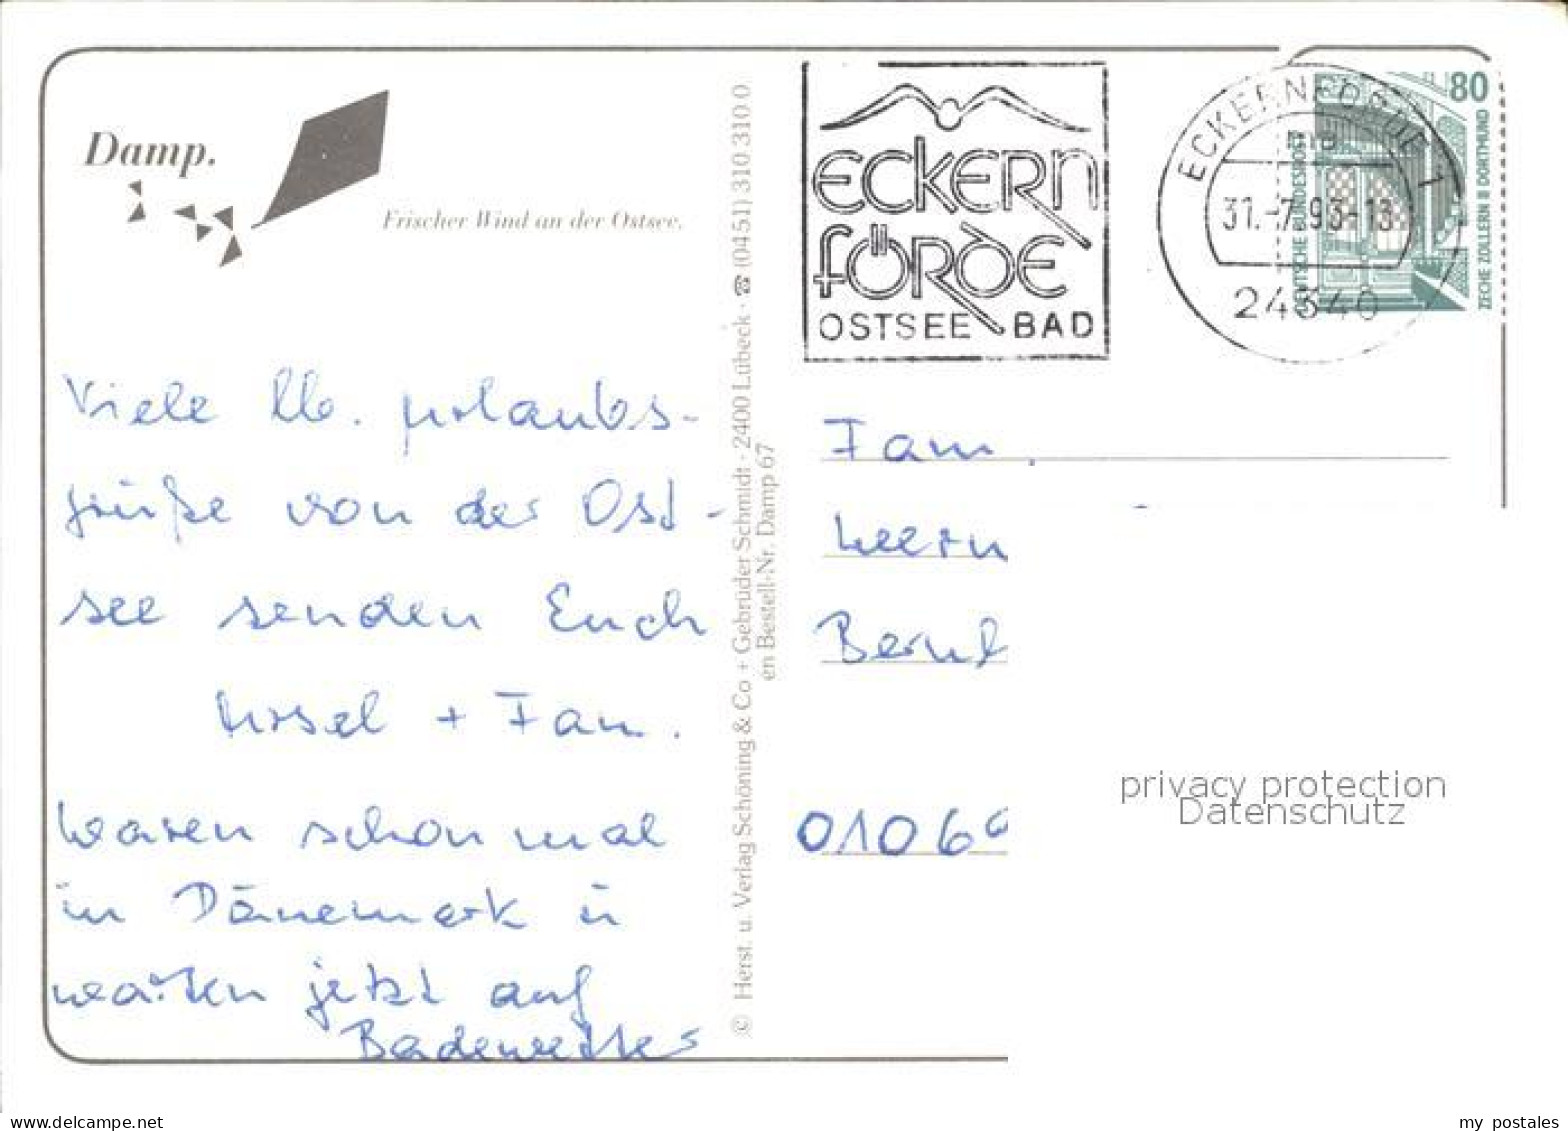 Damp.
Frischer Wind an der Ostsee.
Viele lb. Urlaubs-
grüße von der Ost-
see senden Euch
Ursel + Fam.
Waren schon mal
in Dänemark u
warten jetzt auf
Badewetter
© Herst. u. Verlag Schöning & Co + Gebrüder Schmidt · 2400 Lübeck · ☎ (0451) 310 310 0
en Bestell-Nr. Damp 67
ECKERN
FÖRDE
OSTSEE BAD
ECKERNFÖRDE 1
31.-7.93-13
24340
80
DEUTSCHE BUNDESPOST
ZECHE ZOLLERN II DORTMUND
Fam.
Bernh
0106
privacy protection
Datenschutz
www.delcampe.net
my_postales